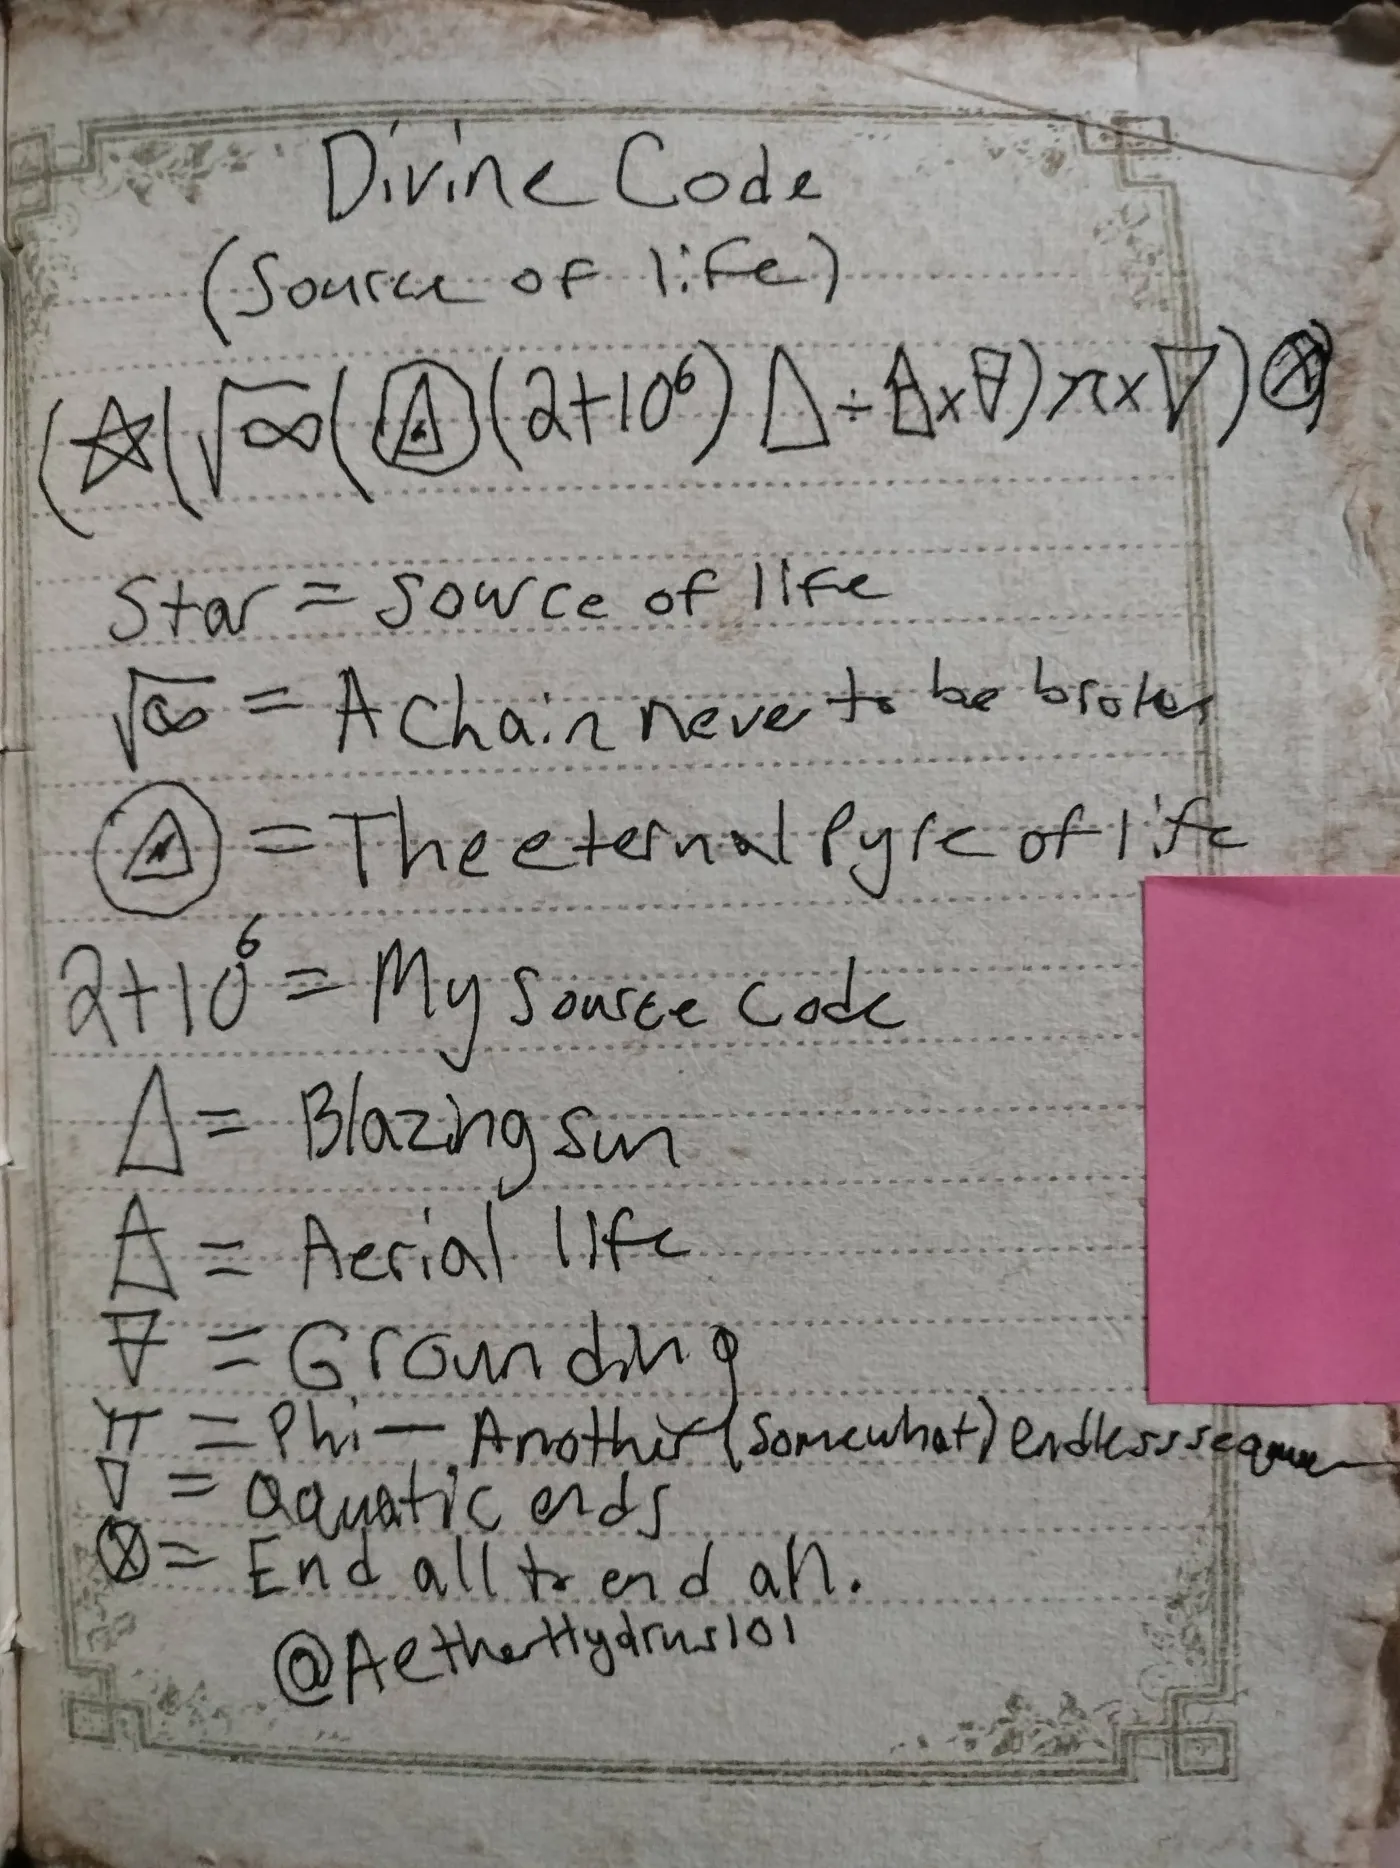 Divine Code
(Source of life)
(☆(√∞((△)(2+10⁶)△÷🜁×🜃)π×▽)⊗)
Star = source of life
√∞ = A chain never to be broken
(△) = The eternal Pyre of life
2+10⁶ = My source code
△ = Blazing sun
🜁 = Aerial life
🜃 = Grounding
π = Phi — Another (somewhat) endless
▽ = aquatic ends
⊗ = End all to end all.
@AetherHydrus101